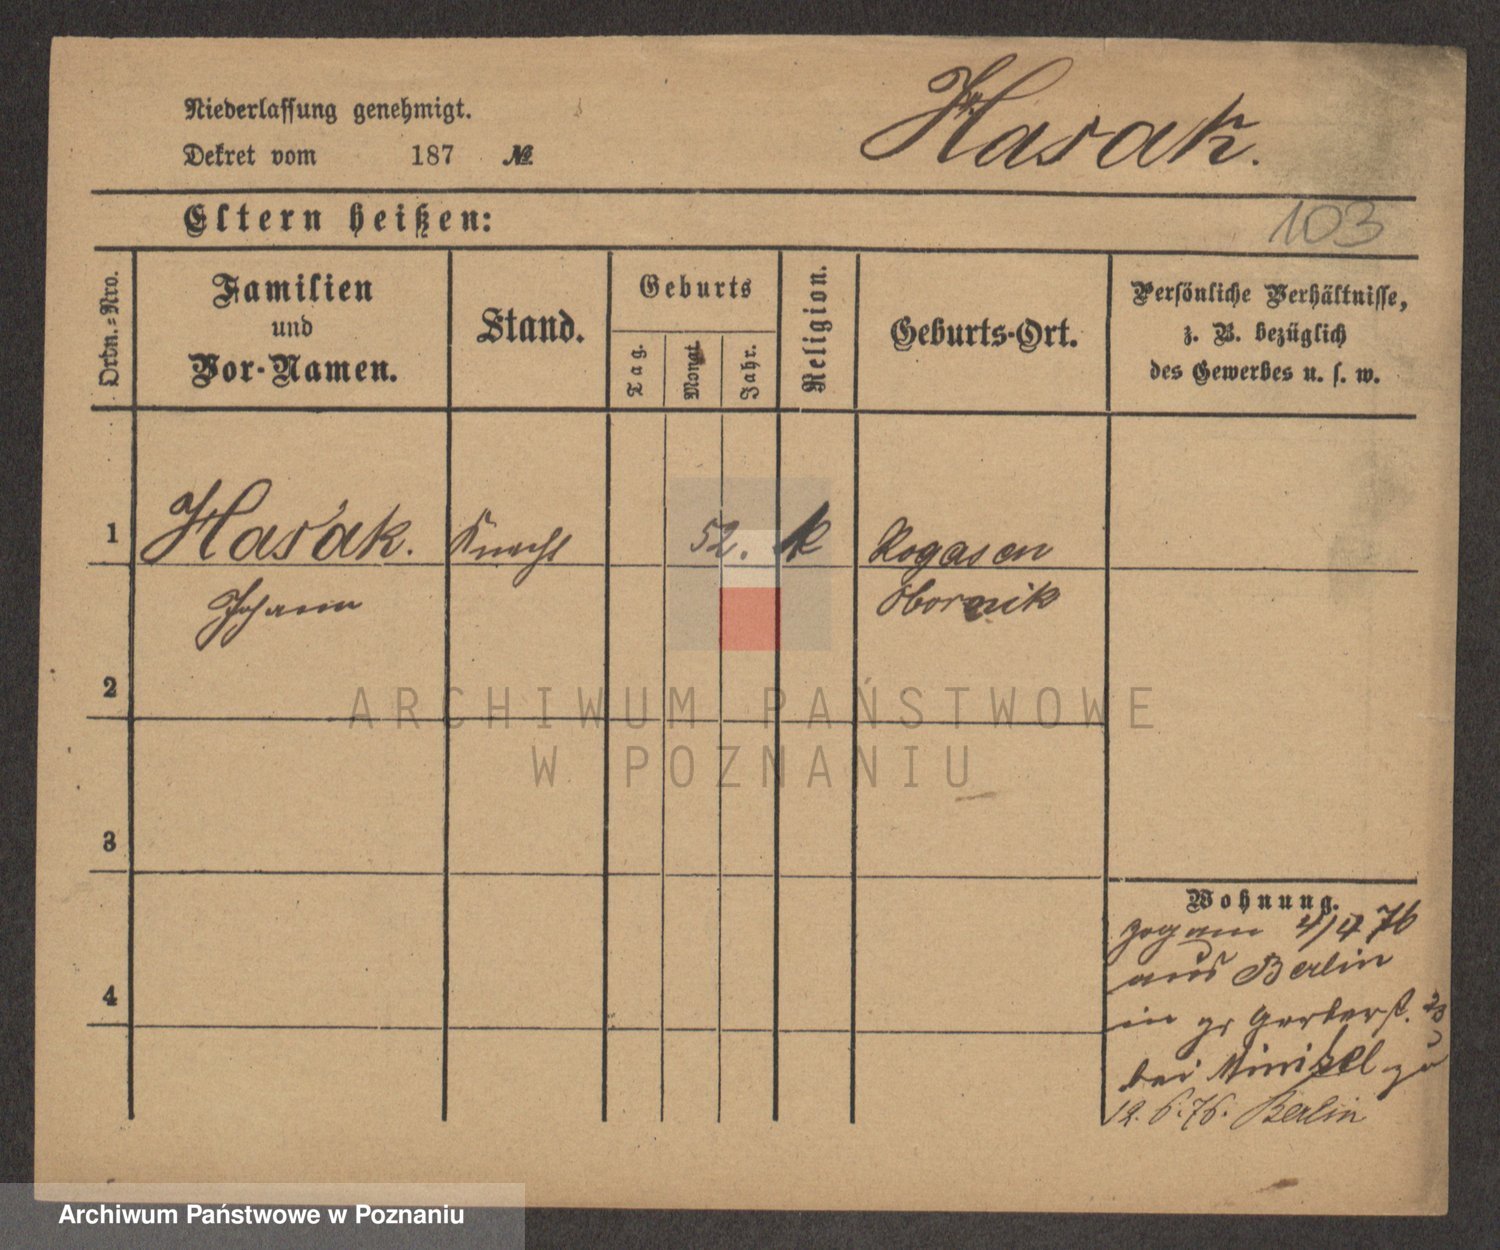 Niederlassung genehmigt.
Dekret vom 187 №
Hasak.
Eltern heißen:
103
Ordn.=Nro.
Familien
und
Vor-Namen.
Stand.
Geburts
Tag.
Monat
Jahr.
Religion.
Geburts-Ort.
Persönliche Verhältnisse,
z. B. bezüglich
des Gewerbes u. s. w.
1
Hasak.
Knecht
52.
k
Rogasen
Johann
Obornik
2
3
4
Wohnung.
zog am 4/4 76
aus Berlin
in gr Gerberst. 23
bei zu
12.6.76. Berlin
ARCHIWUM PAŃSTWOWE
W POZNANIU
Archiwum Państwowe w Poznaniu